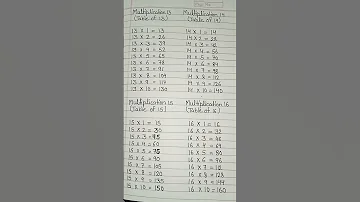 Multiplication 13
(Table of 13)
13 X 1 = 13
13 X 2 = 26
13 X 3 = 39
13 X 4 = 52
13 X 5 = 65
13 X 6 = 78
13 X 7 = 91
13 X 8 = 104
13 X 9 = 117
13 X 10 = 130
Multiplication 14
(Table of 14)
14 X 1 = 14
14 X 2 = 28
14 X 3 = 42
14 X 4 = 56
14 X 5 = 70
14 X 6 = 84
14 X 7 = 98
14 X 8 = 112
14 X 9 = 126
14 X 10 = 140
Multiplication 15
(Table of 15)
15 X 1 = 15
15 X 2 = 30
15 X 3 = 45
15 X 4 = 60
15 X 5 = 75
15 X 6 = 90
15 X 7 = 105
15 X 8 = 120
15 X 9 = 135
15 X 10 = 150
Multiplication 16
(Table of 16)
16 X 1 = 16
16 X 2 = 32
16 X 3 = 48
16 X 4 = 64
16 X 5 = 80
16 X 6 = 96
16 X 7 = 112
16 X 8 = 128
16 X 9 = 144
16 X 10 = 160